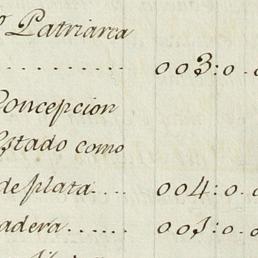 Patriarca
.......... 003:0.
Concepcion
Estado como
de plata.... 004:0.
adera...... 001:0.